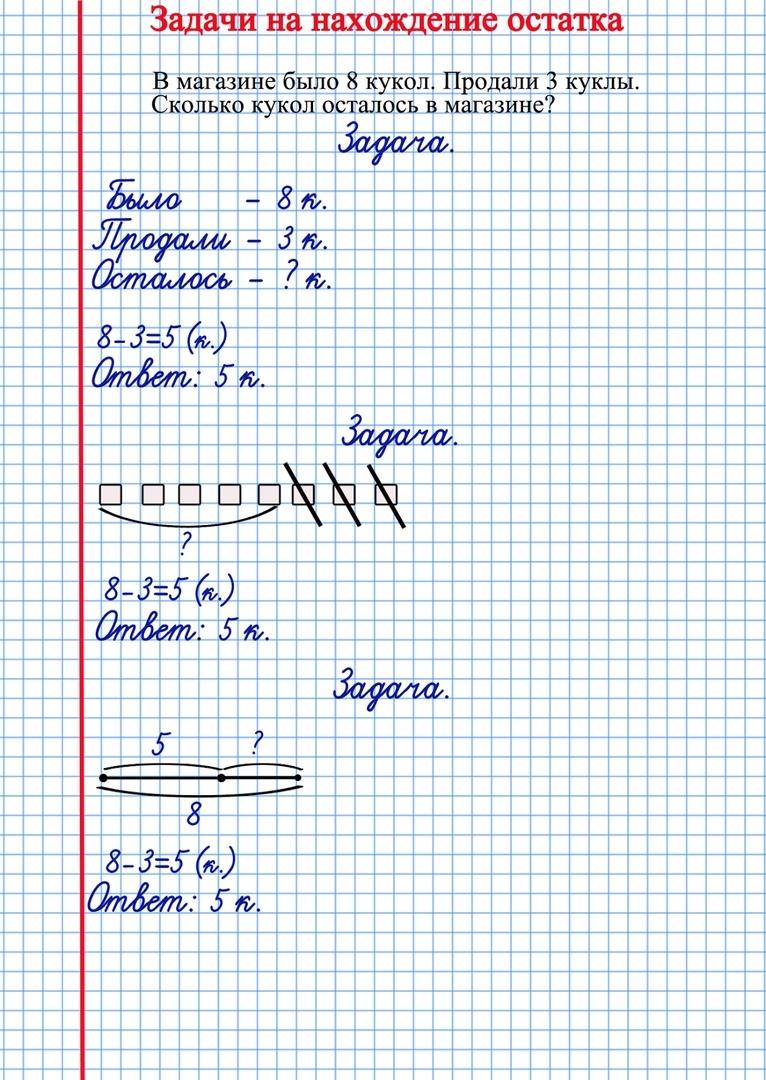 Задачи на нахождение остатка
В магазине было 8 кукол. Продали 3 куклы.
Сколько кукол осталось в магазине?
Задача.
Было – 8 к.
Продали – 3 к.
Осталось – ? к.
8-3=5 (к.)
Ответ: 5 к.
Задача.
?
8-3=5 (к.)
Ответ: 5 к.
Задача.
5 ?
8
8-3=5 (к.)
Ответ: 5 к.